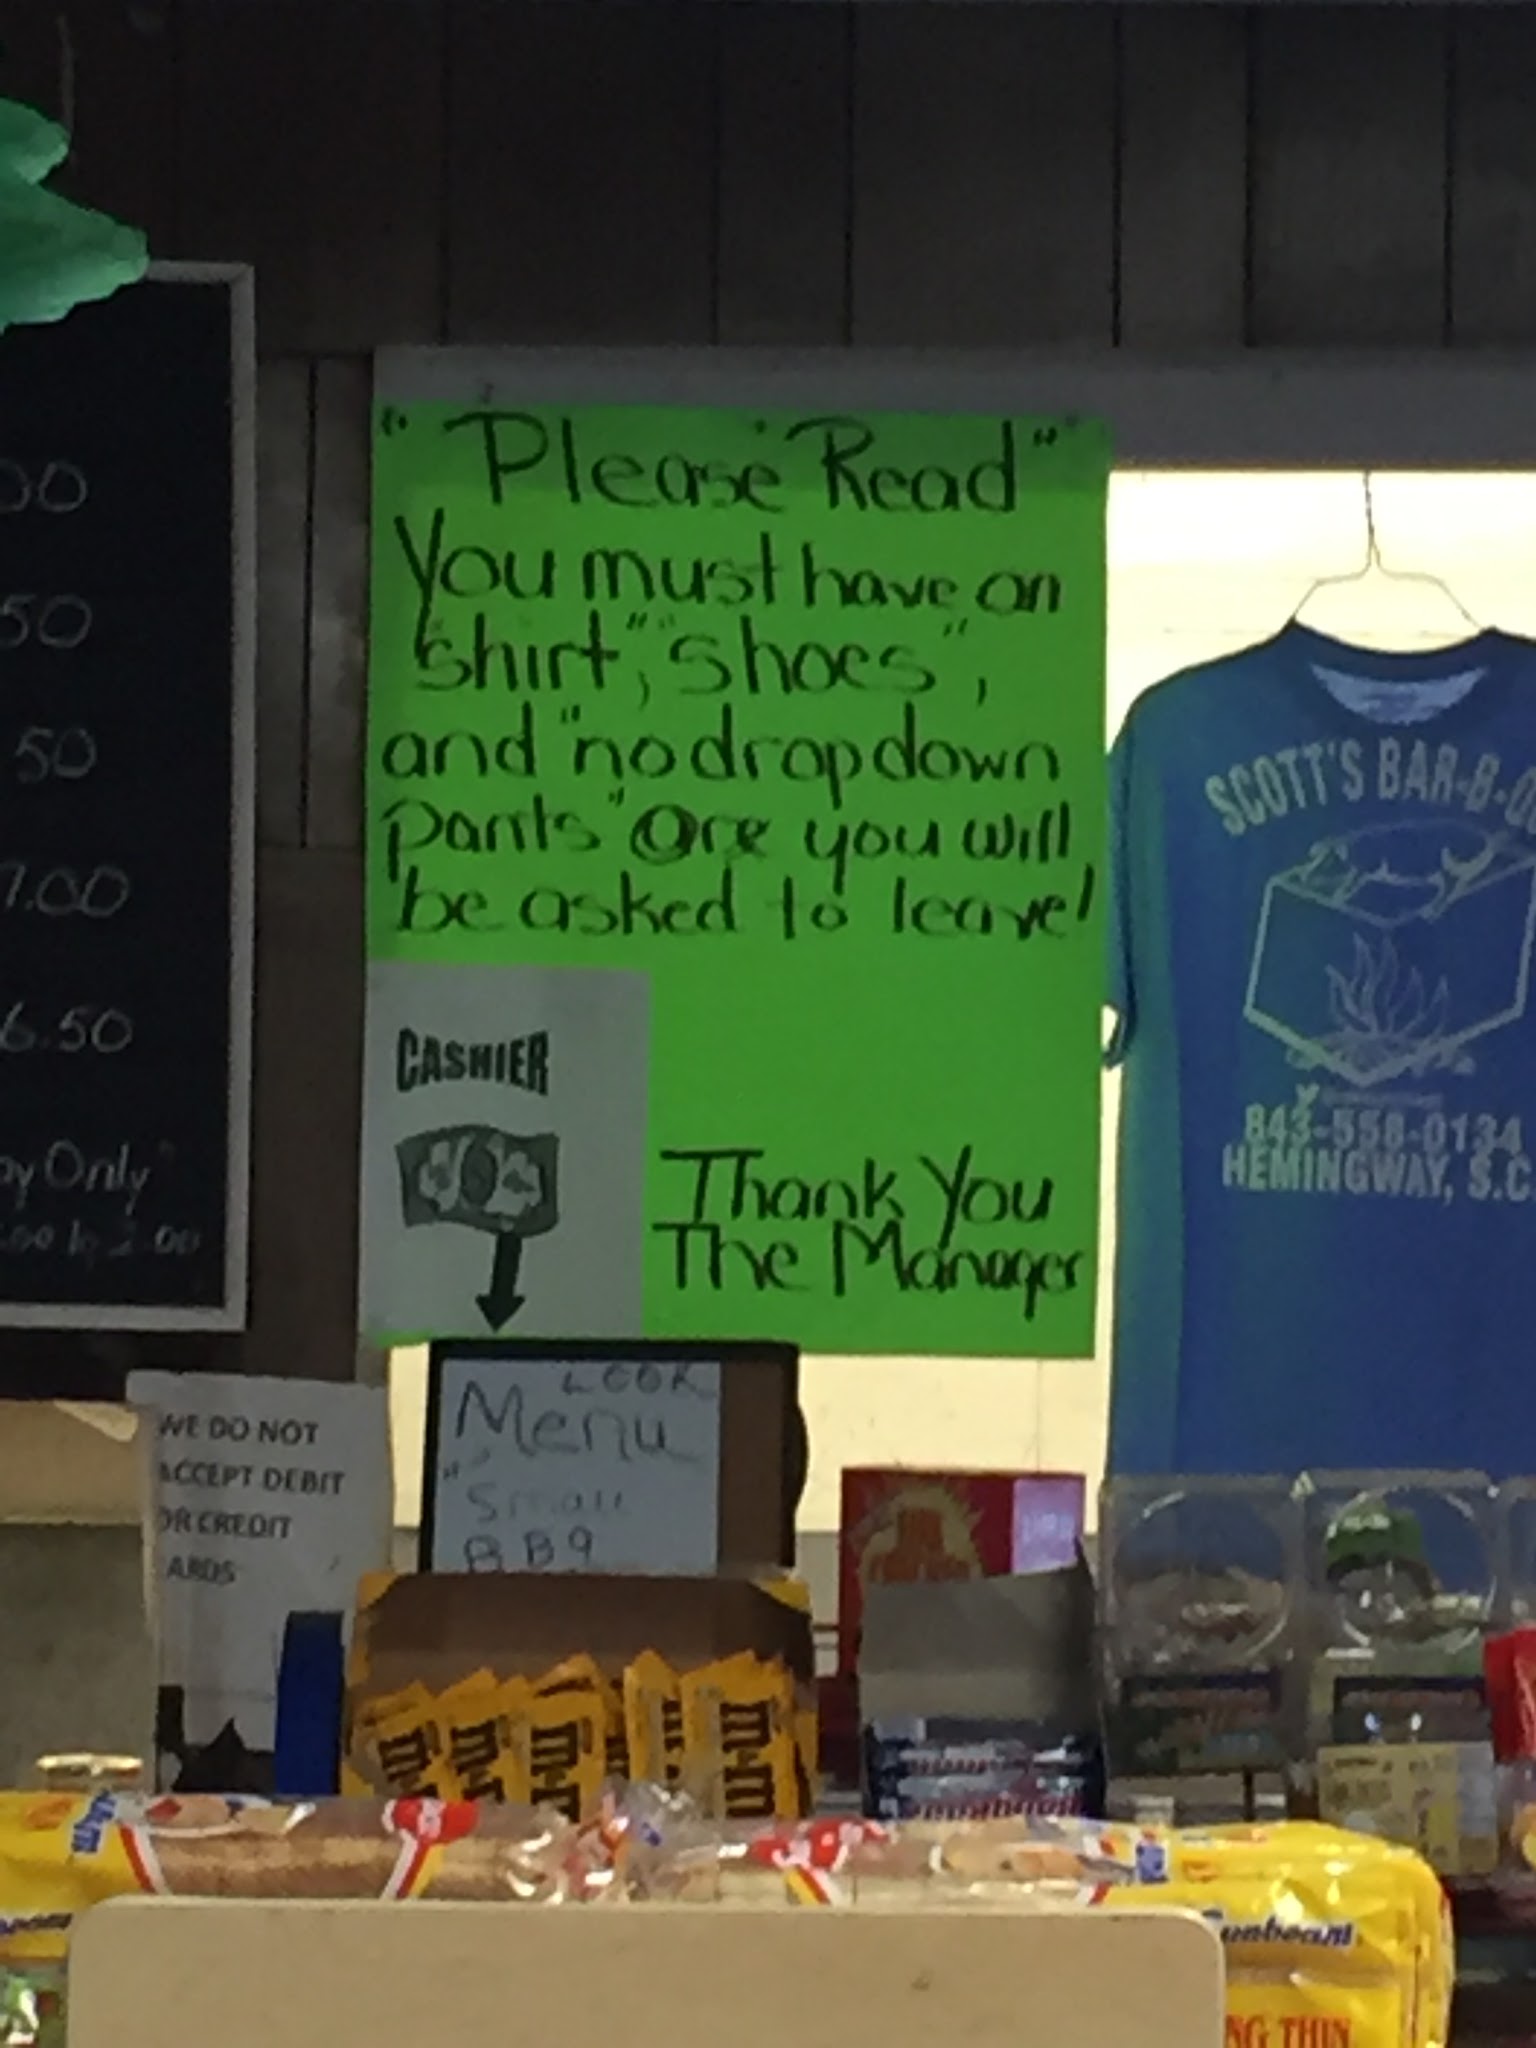 00
50
50
7.00
6.50
Only"
2.00
" Please Read "
You must have on
"shirt", "shoes",
and "no drop down
pants" are you will
be asked to leave!
CASHIER
Thank You
The Manager
SCOTT'S BAR-B-Q
843-558-0134
HEMINGWAY, S.C
WE DO NOT
ACCEPT DEBIT
OR CREDIT
ARDS
LOOK
Menu
" Small
BBQ
m&m
m&m
m&m
m&m
Sunbeam
NG THIN